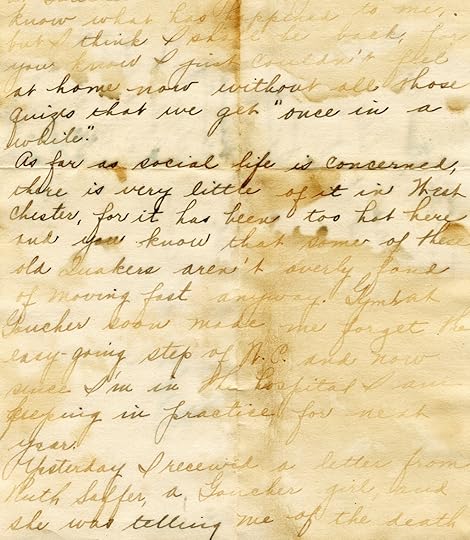 know what has happened to me,
but I think I shall be back, for
you know I just couldn't feel
at home now without all those
quizes that we get "once in a
while".
As far as social life is concerned,
there is very little of it in West
Chester, for it has been too hot here
and you know that some of these
old Quakers aren't overly fond
of moving fast anyway. Gym at
Goucher soon made me forget the
easy-going step of W. C. and now
since I'm in the hospital I am
keeping in practice for next
year.
Yesterday I received a letter from
Ruth, a Goucher girl, and
she was telling me of the death